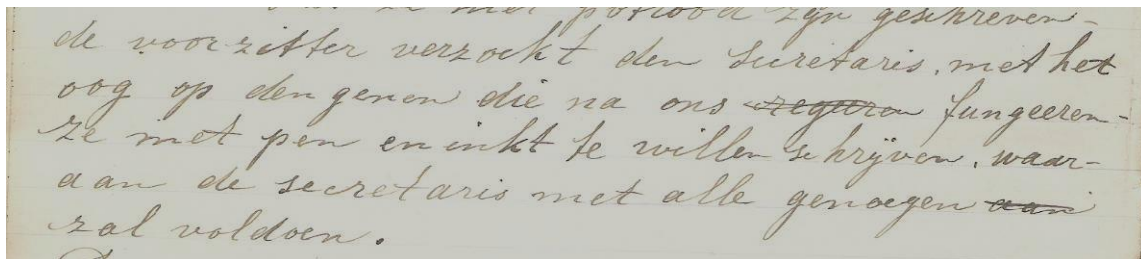 ze met potlood zijn geschreven-
de voorzitter verzoekt den Secretaris. met het
oog op den genen die na ons fungeeren-
ze met pen en inkt te willen schrijven. waar-
aan de secretaris met alle genoegen aan
zal voldoen.